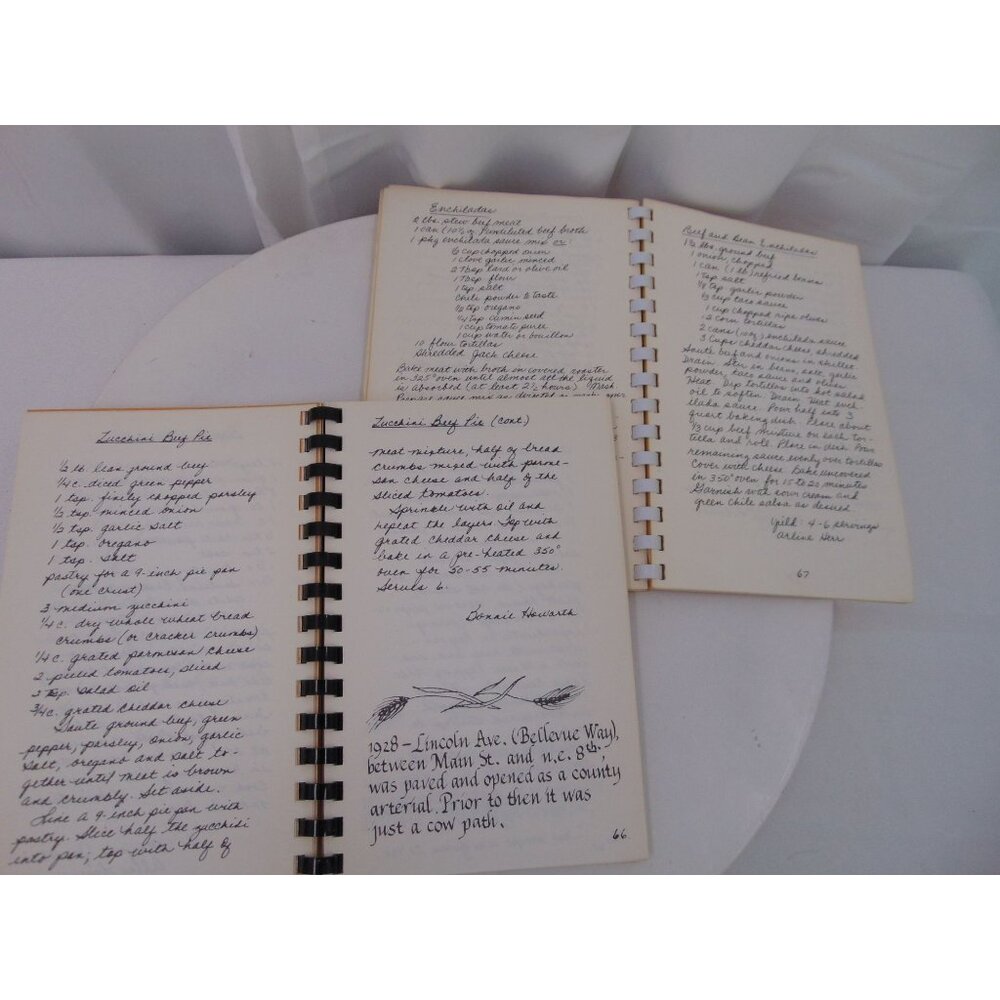 Enchiladas
2 lbs. stew beef meat
1 can (10½ oz) undiluted beef broth
1 pkg enchilada sauce mix or:
½ cup chopped onion
1 clove garlic minced
2 Tbsp lard or olive oil
1 Tbsp flour
1 tsp salt
Chile powder to taste
½ tsp oregano
¼ tsp cumin seed
1 cup tomato puree
1 cup water or bouillon
10 flour tortillas
Shredded Jack cheese
Bake meat with broth in covered roaster
in 325° oven until almost all the liquid
is absorbed (at least 2½ hours). Mash.
Prepare sauce mix as directed or make your
Beef and Bean Enchiladas
1½ lbs. ground beef
1 onion, chopped
1 can (1 lb) refried beans
1 tsp salt
⅛ tsp garlic powder
⅓ cup taco sauce
1 cup chopped ripe olives
12 corn tortillas
2 cans (10 oz) enchilada sauce
3 cups cheddar cheese, shredded
Saute beef and onions in skillet.
Drain. Stir in beans, salt, garlic
powder, taco sauce and olives.
Heat. Dip tortillas into hot salad
oil to soften. Drain. Heat enchi-
lada sauce. Pour half into 3
quart baking dish. Place about
⅓ cup beef mixture on each tor-
tilla and roll. Place in dish. Pour
remaining sauce evenly over tortillas
Cover with cheese. Bake uncovered
in 350° oven for 15 to 20 minutes
Garnish with sour cream and
green chile salsa as desired
Yield: 4-6 servings
Arlene Herr
67
Zucchini Beef Pie
½ lb. lean ground beef
¼ c. diced green pepper
1 tsp. finely chopped parsley
½ tsp. minced onion
½ tsp. garlic salt
1 tsp. oregano
1 tsp. salt
pastry for a 9-inch pie pan
(one crust)
3 medium zucchini
¼ c. dry whole wheat bread
crumbs (or cracker crumbs)
¼ c. grated parmesan cheese
2 peeled tomatoes, sliced
2 tsp. salad oil
¾ c. grated cheddar cheese
Saute ground beef, green
pepper, parsley, onion, garlic
salt, oregano and salt to-
gether until meat is brown
and crumbly. Set aside.
Line a 9-inch pie pan with
pastry. Slice half the zucchini
into pan; top with half of
Zucchini Beef Pie (cont)
meat mixture, half of bread
crumbs mixed with parme-
san cheese and half of the
sliced tomatoes.
Sprinkle with oil and
repeat the layers. Top with
grated cheddar cheese and
bake in a pre-heated 350°
oven for 50-55 minutes.
Serves 6.
Bonnie Howarth
1928 – Lincoln Ave. (Bellevue Way),
between Main St. and n.e. 8th,
was paved and opened as a county
arterial. Prior to then it was
just a cow path.
66